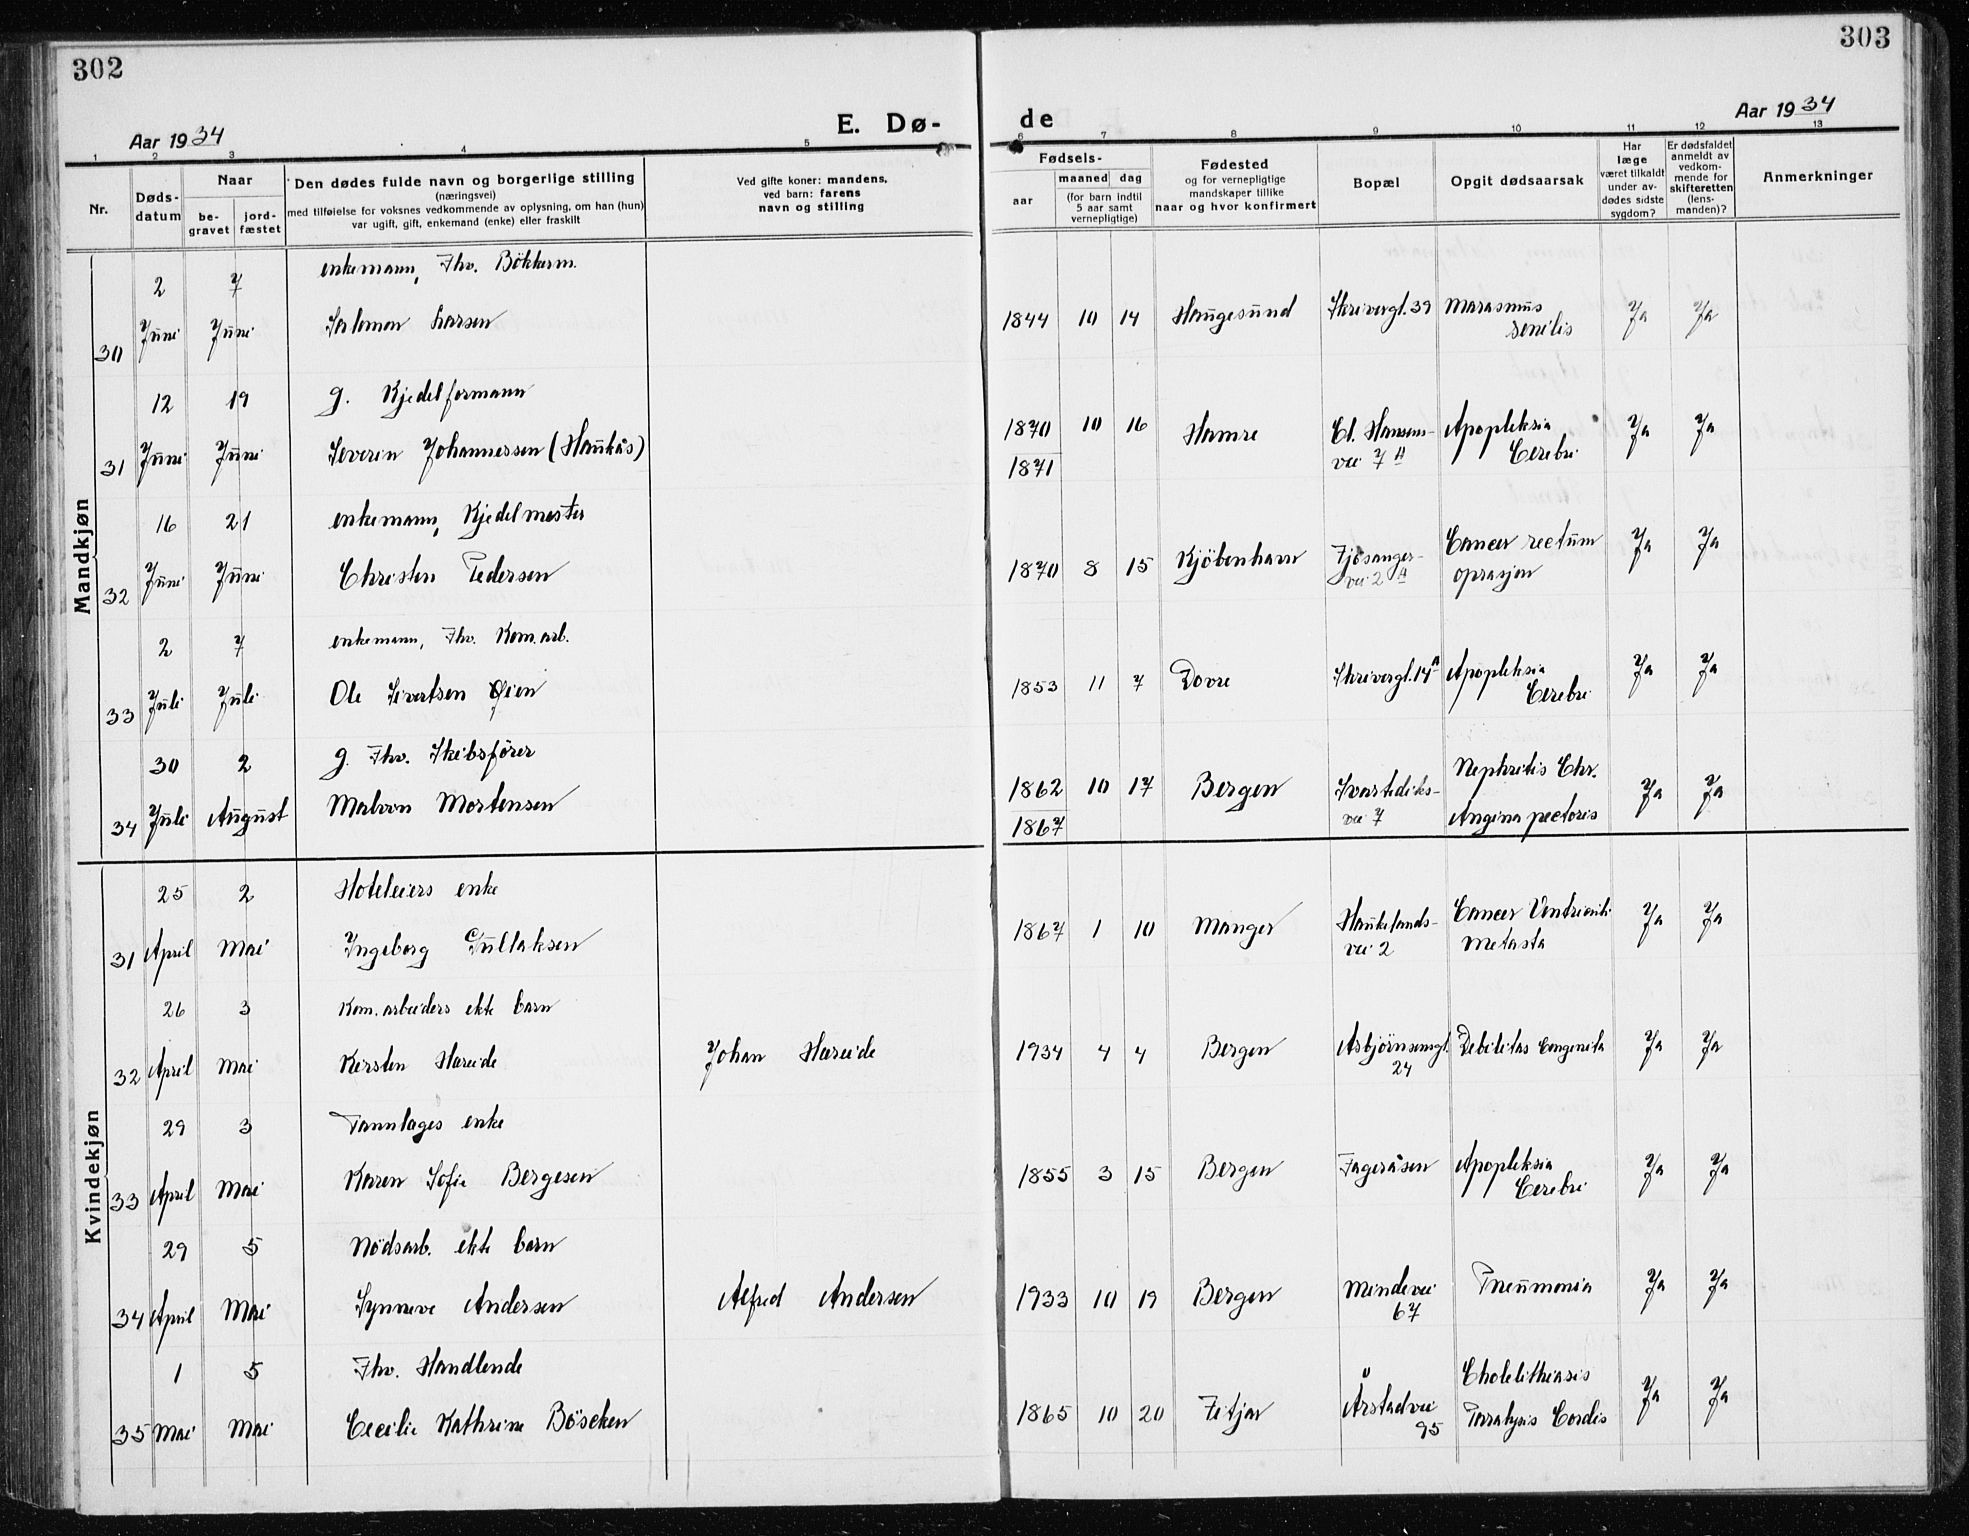 302
303
Aar 1934
E. Dø-
de
Aar 1934
1 2 3 4 5 6 7 8 9 10 11 12 13
Nr.
Døds-
datum
Naar
be-
gravet
jord-
fæstet
Den dødes fulde navn og borgerlige stilling
(næringsvei)
med tilføielse for voksnes vedkommende av oplysning, om han (hun)
var ugift, gift, enkemand (enke) eller fraskilt
Ved gifte koner: mandens,
ved barn: farens
navn og stilling
Fødsels-
aar
maaned dag
(for barn indtil
5 aar samt
vernepligtige)
Fødested
og for vernepligtige
mandskaper tillike
naar og hvor konfirmert
Bopæl
Opgit dødsaarsak
Har
læge
været tilkaldt
under av-
dødes sidste
sygdom?
Er dødsfaldet
anmeldt av
vedkom-
mende for
skifteretten
(lens-
manden)?
Anmerkninger
Mandkjøn
2 7 enkemann, Fhv. Bökkerm.
30 Juni Juni Salomon Larsen 1844 10 14 Haugesund Skrivergt. 39 Marasmus Ja Ja
senilis
12 19 g. Kjedelformann
31 Juni Juni Severin Johannessen (Haukås) 1870 10 16 Hamre Cl. Hansens- Apopleksia Ja Ja
1871 vei 7 A Cerebri
16 21 enkemann, Kjedelmester
32 Juni Juni Christen Pedersen 1870 8 15 Kjöbenhavn Fjösanger- Cancer rectum Ja Ja
vei 2 A oprasjon
2 7 enkemann, Fhv. Kom. arb.
33 Juli Juli Ole Sivertsen Øien 1853 11 7 Dovre Skrivergt. 14 A Apopleksia Ja Ja
Cerebri
30 2 g. Fhv. Skibsfører
34 Juli August Malvin Mortensen 1862 10 17 Bergen Svartediks- Nephritis Chr. Ja Ja
1867 vei 7 Angina pectoris
Kvindekjøn
25 2 Hoteleiers enke
31 April Mai Ingeborg Gullaksen 1867 1 10 Manger Haukelands- Cancer Ventriculi Ja Ja
vei 2 Metasta
26 3 Kom. arbeiders ekte barn
32 April Mai Kirsten Hareide Johan Hareide 1934 4 4 Bergen Asbjörnsensgt. Debilitas Congenita Ja Ja
24
29 3 Tannlæges enke
33 April Mai Karen Sofie Bergesen 1855 3 15 Bergen Fageråsen Apopleksia Ja Ja
Cerebri
29 5 Nödsarb. ekte barn
34 April Mai Synneve Andersen Alfred Andersen 1933 10 19 Bergen Mindevei Pneumonia Ja Ja
67
1 5 Fhv. Handlende
35 Mai Mai Cecilie Kathrine Böschen 1865 10 20 Fitjar Årstadvei Cholelithiasis Ja Ja
95 Paralysis Cordis